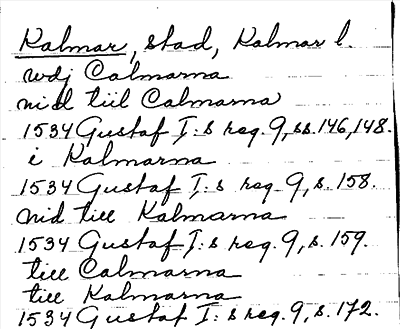 Kalmar, stad, Kalmar l.
wdj Calmarna
nid tiil Calmarna
1534 Gustaf I:s reg. 9, ss. 146, 148.
i Kalmarna
1534 Gustaf I:s reg. 9, s. 158.
nid till Kalmarna
1534 Gustaf I:s reg. 9, s. 159.
till Calmarna
till Kalmarna
1534 Gustaf I:s reg. 9, s. 172.